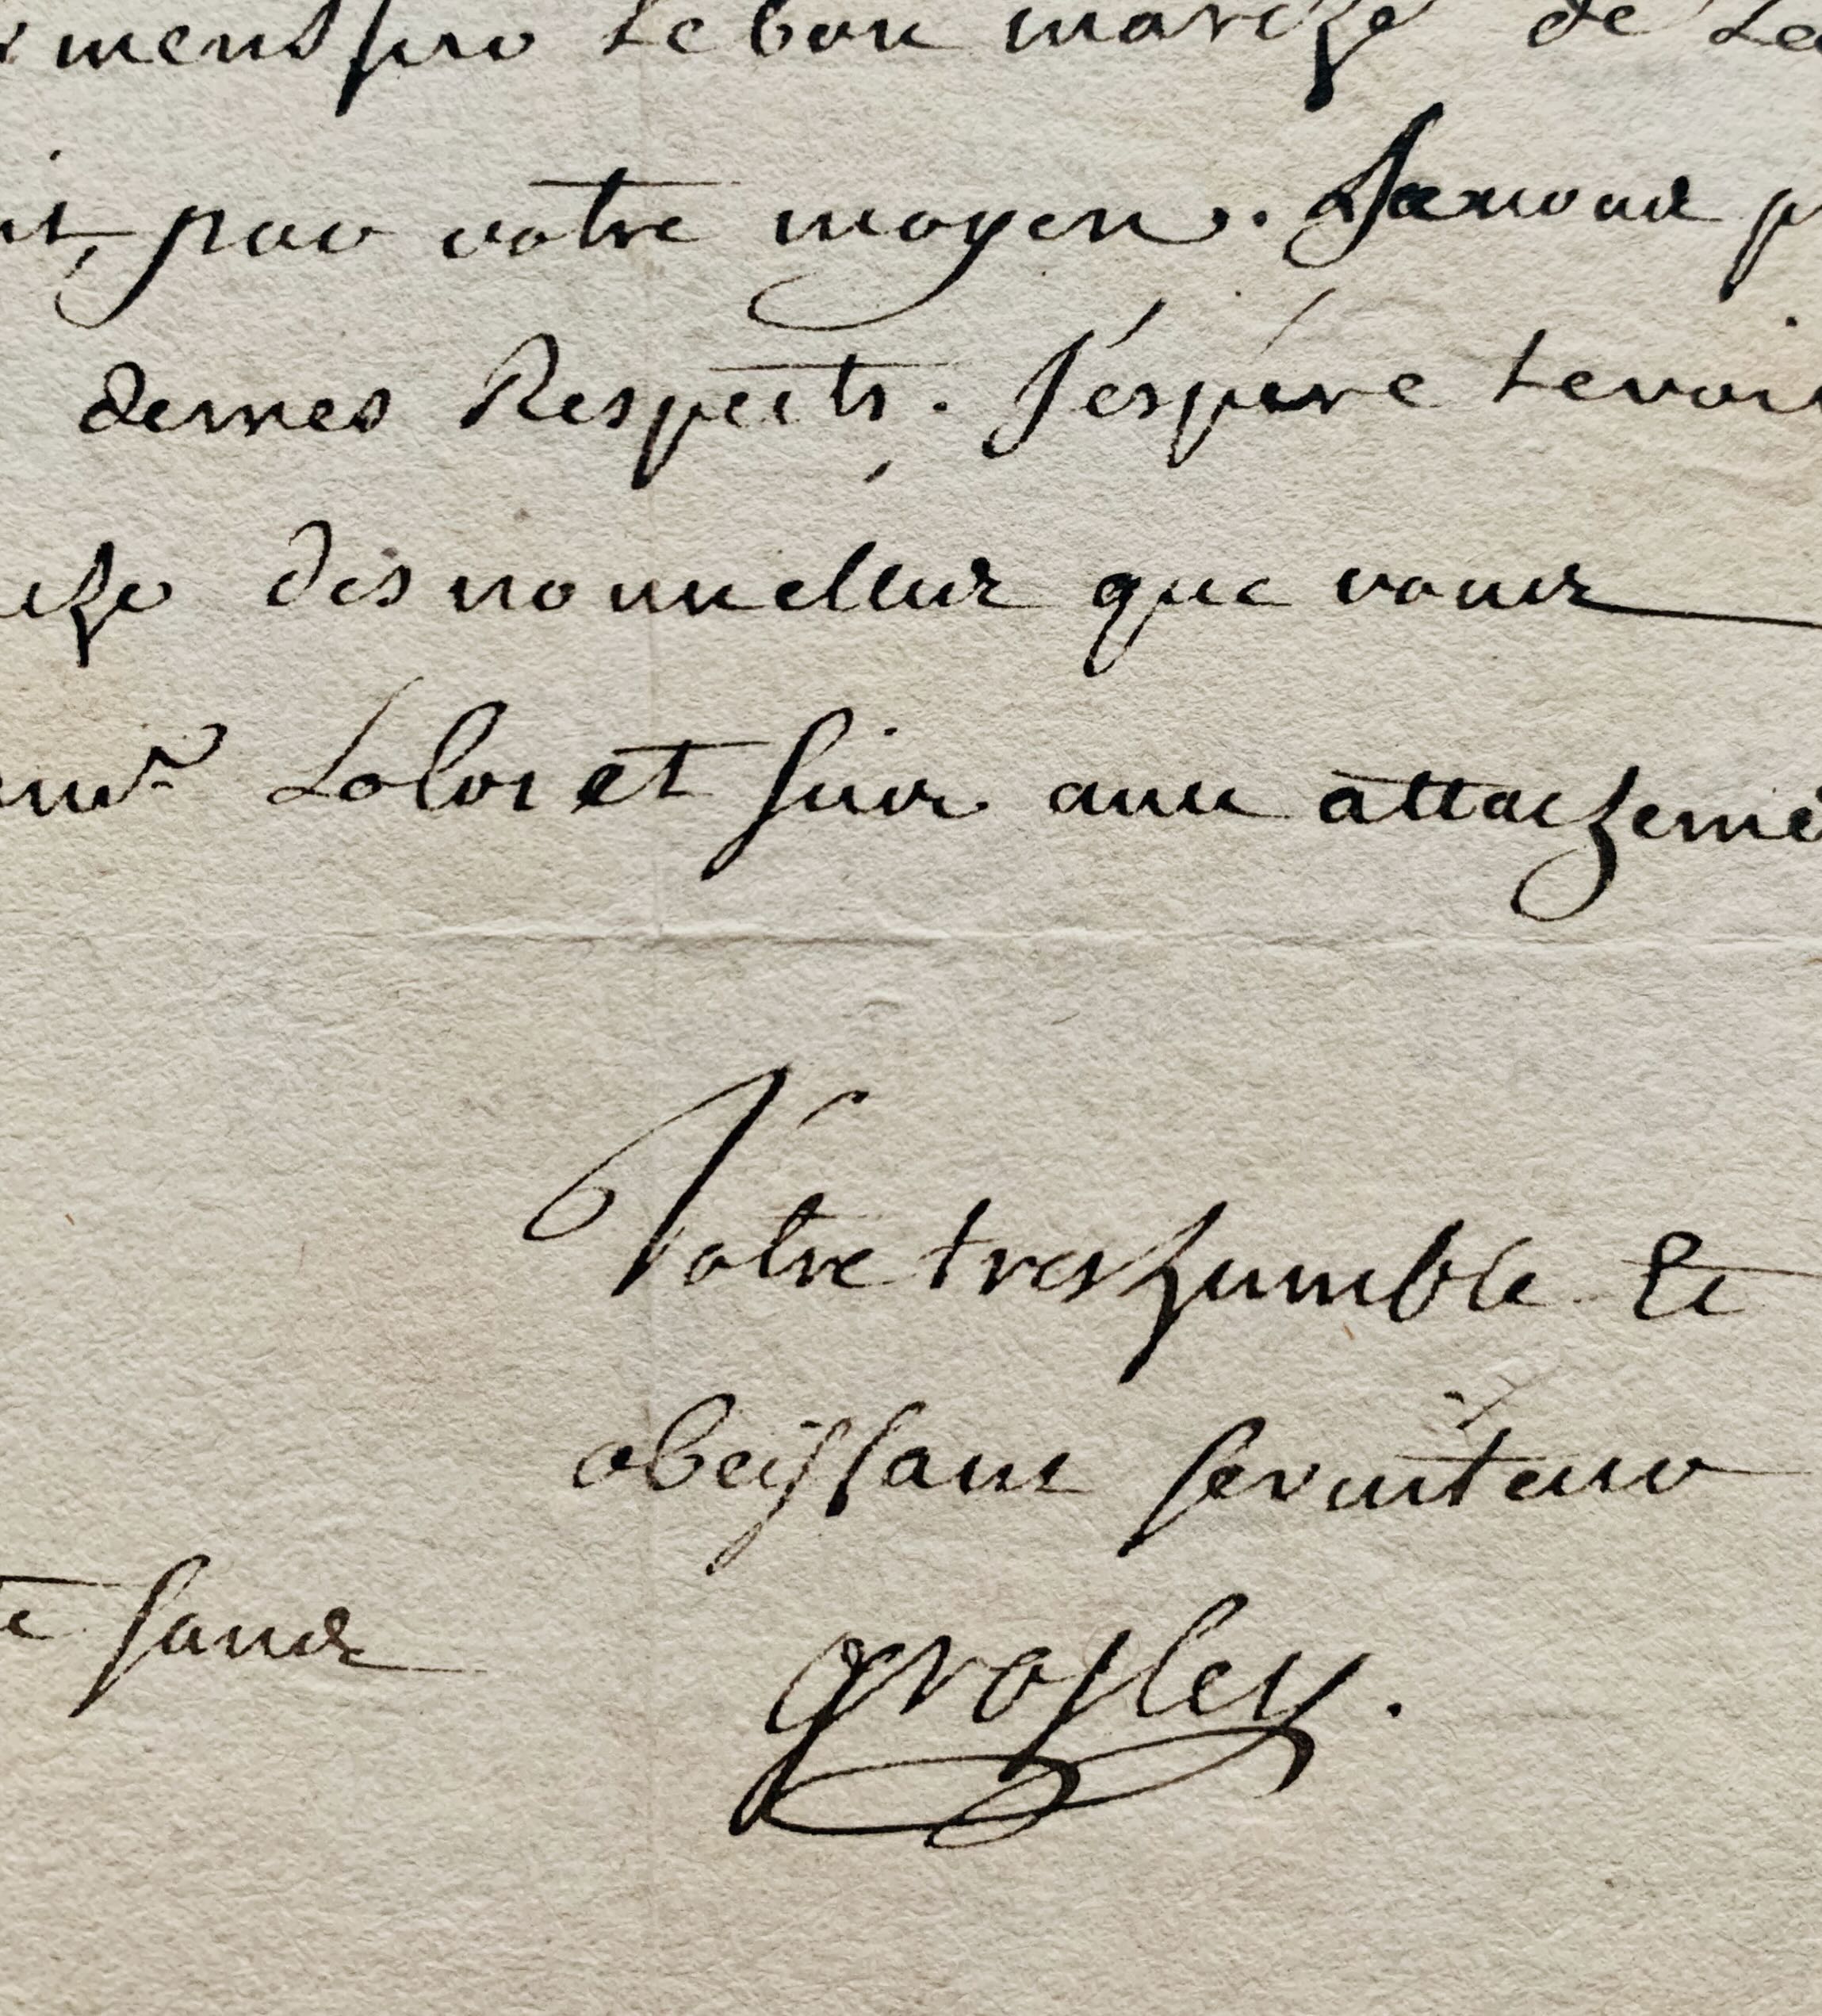 mens sur le bon marché de
par votre moyen. Je vous
de mes Respects. J'espère le voir
des nouvelles que vous
et suis avec attacheme
Votre tres humble Et
obeissant serviteur
sans
Grosley.